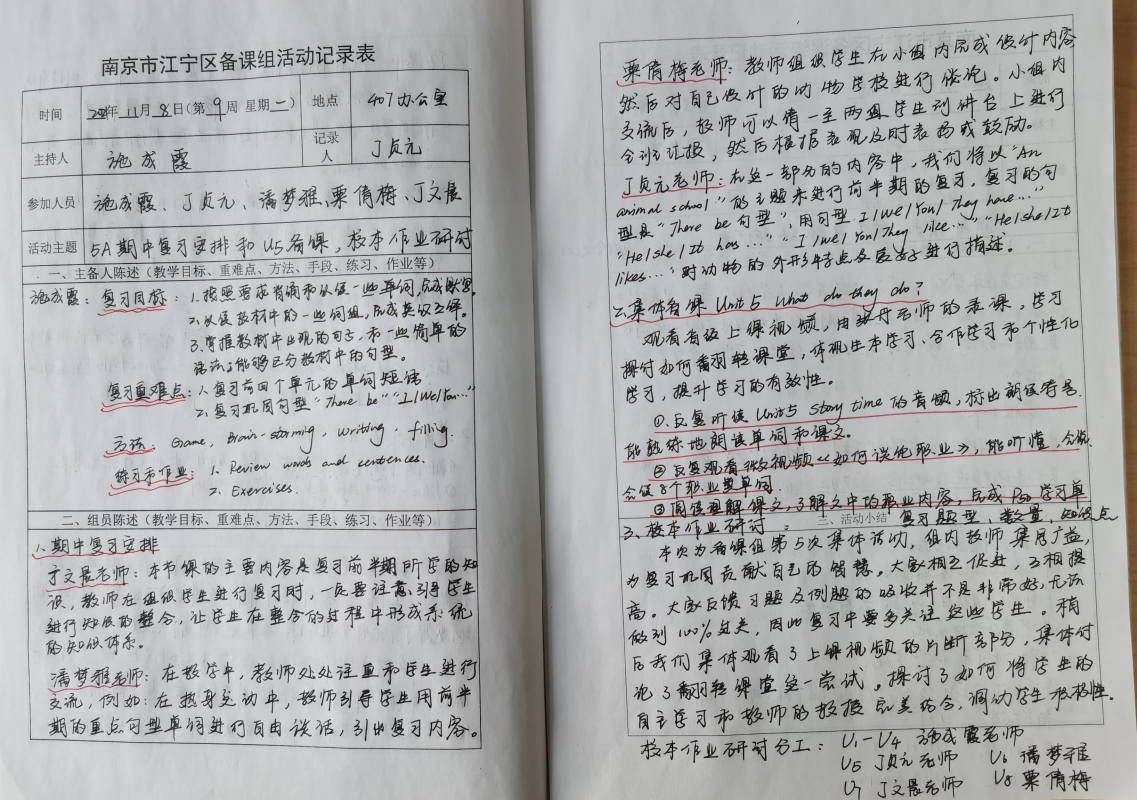 南京市江宁区备课组活动记录表
时间 年 11月 8日(第 9 周 星期 二) 地点 407办公室
主持人 施成霞 记录人 丁贞元
参加人员 施成霞、丁贞元、潘梦雅、栗倩梅、丁文晨
活动主题 5A期中复习安排和U5备课,校本作业研讨
一、主备人陈述(教学目标、重难点、方法、手段、练习、作业等)
施成霞:复习目标:1.按照要求背诵和认读一些单词,完成默写。
2.认读教材中的一些词组,完成英汉互译。
3.掌握教材中出现的句子,和一些简单的
语法,能够区分教材中的句型。
复习重难点:1.复习前四个单元的单词短语
2.复习巩固句型"There be" "I/We/You…"
方法:Game, Brain-storming, writing, filling.
练习和作业:1. Review words and sentences.
2. Exercises.
二、组员陈述(教学目标、重难点、方法、手段、练习、作业等)
1.期中复习安排
丁文晨老师:本节课的主要内容是复习前半期所学的知
识,教师在组织学生进行复习时,一定要注意引导学生
进行知识的整合,让学生在整合的过程中形成系统
的知识体系。
潘梦雅老师:在教学中,教师处处注重和学生进行
交流,例如:在热身活动中,教师引导学生用前半
期的重点句型单词进行自由谈话,引出复习内容。
栗倩梅老师:教师组织学生在小组内完成设计内容
然后对自己设计的动物学校进行讨论。小组内
交流后,教师可以请一至两组学生到讲台上进行
全班汇报,然后根据表现及时表扬或鼓励。
丁贞元老师:在这一部分的内容中,我们将以"An
animal school"的主题来进行前半期的复习,复习的句
型是"There be句型",用句型 I/We/You/They have…"
"He/she/It has…" "I/we/You/They like…" "He/she/It
likes…"对动物的外形特点及爱好进行描述。
二、集体备课 Unit 5 What do they do?
观看省级上课视频,由老师的录课,学习
探讨如何翻转课堂,体现生本学习、合作学习和个性化
学习,提升学习的有效性。
①反复听读 Unit 5 Story time 的音频,标出朗读符号,
能熟练地朗读单词和课文。
②反复观看微视频《如何谈论职业》,能听懂,会说
会读8个职业类单词.
③阅读理解课文,了解文中的职业内容,完成P50学习单
3、校本作业研讨: 三、活动小结 复习题型、数量、知识点
本次为备课组第5次集体活动,组内教师集思广益,
为复习巩固贡献自己的智慧。大家相互促进,互相提
高。大家反馈习题及例题的吸收并不是非常好,无法
做到100%过关,因此复习中要多关注这些学生。稍
后我们集体观看了上课视频的片断部分,集体讨
论了翻转课堂这一尝试。探讨了如何将学生的
自主学习和教师的教授完美结合,调动学生积极性.
校本作业研讨分工: U1-U4 施成霞老师
U5 丁贞元老师 U6 潘梦雅
U7 丁文晨老师 U8 栗倩梅